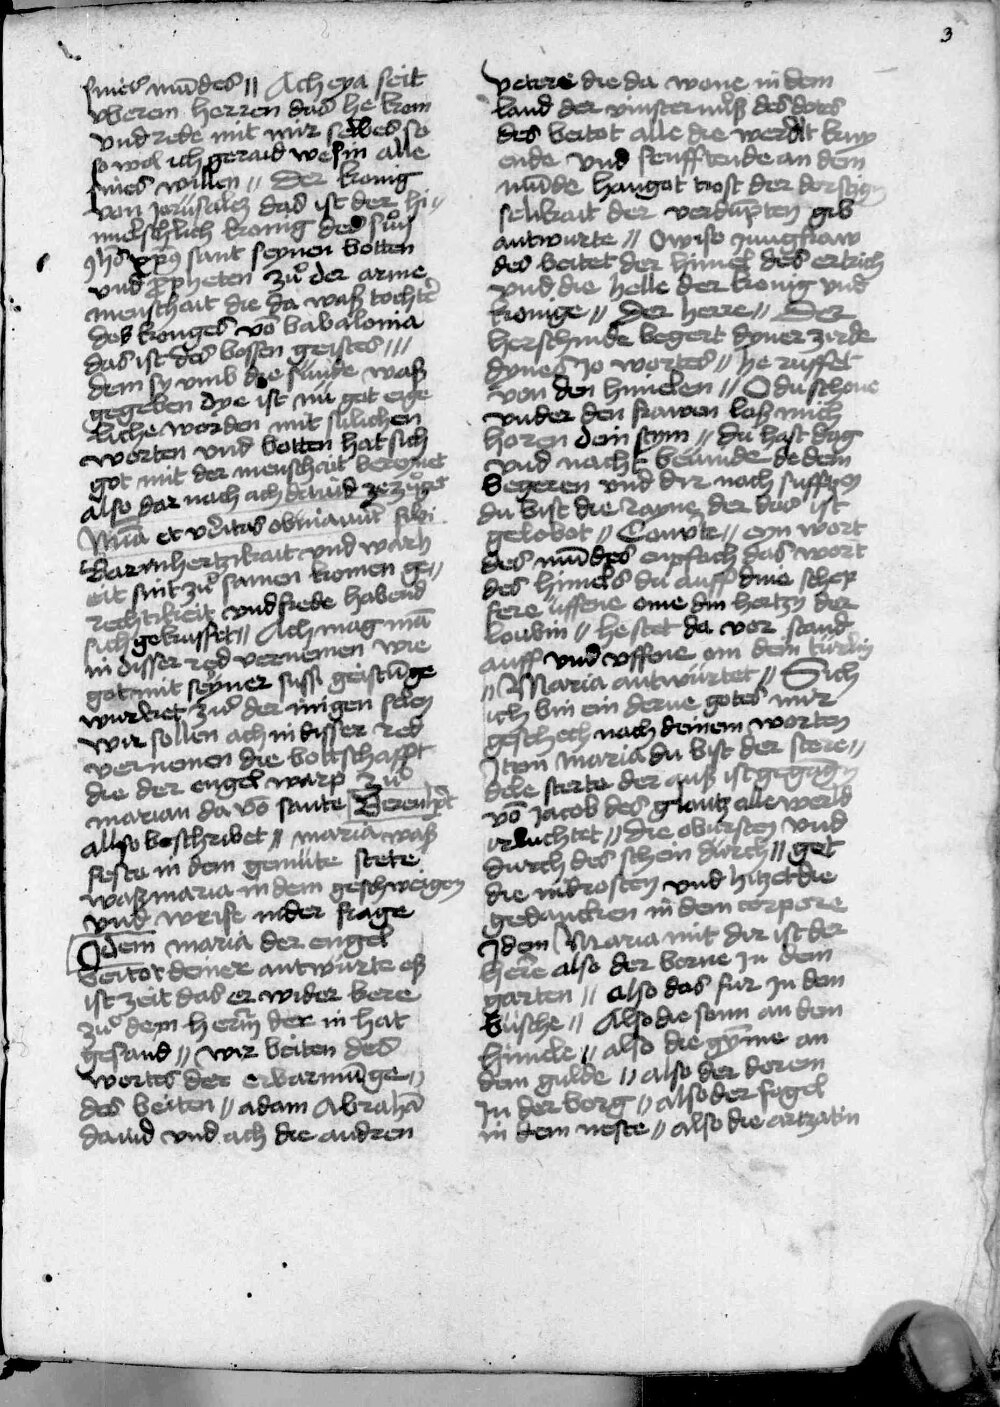 3
smes mūdes // Ach eya seit
vwerem herren das he kom
vnd rede mit mir selbes so
so wol ich geraid wesin alle
sines willen // Der konig
von jorusalem das ist der hi-
melschlich konig des sūn
xp̄us sant seynen botten
vnd propheten zů der arme
menschait die da waß tochter
dos konges vō babalonia
das ist des bossen geistes ///
dem sy vmb die sunde waß
gegeben Dye ist nū got eige
liche worden mit sulichen
worten vnd botten hat sich
got mit der menschait bereynet
also dar nach ach dauid
Mīa et veritas obuiauit sibi
Barmhertzikait vnd warh
eit sint zů samen komen ge-
rechtikeit vnd frede habend
sich gekusset // Ach mag mā
in disser red vernemen wie
got mit seyner sussi geistūge
wurcket zů der īnigen selen
wir sollen ach in disser red
vernemen die bottschafft
die der engel warp zů
marian da vō sante Berenhart
allso beschribet // maria waß
feste in dem gemüte stete
waß maria in dem geschweigen
vnd weise in der frage
Idem maria der engel
beitot deiner antwurte eß
ist zeit das er wider kere
zů dem herrn der in hat
gesand // wir beiten des
wortes der erbarmūge //
des beiten // adam Abrahā
dauid vnd ach die andren
vetere die da wone in dem
land der vinsternuß des dotes
des beitot alle die werlt kny
ende vnd seufftende an dem
mūde hangot trost der dorstigen
selikait der verdūpten gib
antwurte // O wise jungfraw
des beitet der himel des ertrich
vnd die helle der konig vnd
konige // Der herre // Der
herschinde begert dyner zirde
dynes jo wortes // he ruffet
von den himelen // O du schone
vnder den frawen laß mich
horen dein stym // du hast dag
vnd nacht beūinde de dem
begeren vnd dir nach sufftzen
du bist die rayne der das ist
gelobot // eyn wort
des mūdes enpfach das wort
des himels du auff dme schep
fere uffene ome din hertzy der
loubin // he stet da vor stand
auff vnd vffene om dem turlin
// Maria antwürtet // Sich
ich bin ein derne gotes mir
geschech nach deinem worten
Item maria du bist der stere-
dele sterte der auß ist gegāgen
vō jacob des glantz alle werld
irluchtet // die obursten vnd
durch des schein durch // get
die nidrosten vnd hitzet die
gedancken in dem corpore
Idem Maria mit dir ist der
here also der borne in dem
garten // also das fur in dem
büsche // Also die sonn an dem
himele // also die gȳme an
dem gulde // also der dorem
in der borg // also der fogel
in dem neste // also die artzatin